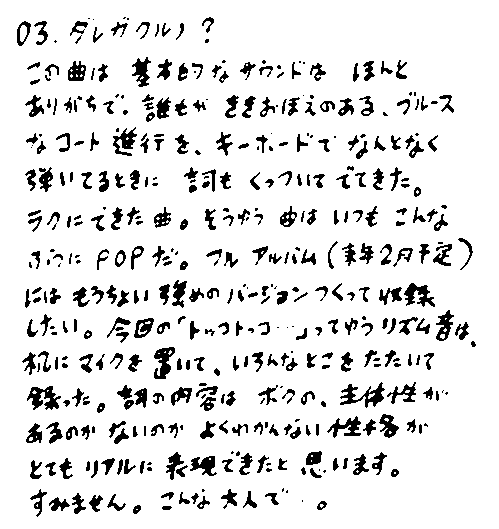 03. ダレガクルノ？
この曲は 基本的なサウンドは ほんと
ありがちで。誰もが ききおぼえのある、ブルース
なコード進行を、キーボードで なんとなく
弾いてるときに 詞も くっついて でてきた。
ラクにできた曲。そうゆう 曲は いつも こんな
ふうに POPだ。フル アルバム(来年2月予定)
には もうちょい 強めのバージョンつくって収録
したい。今回の「トゥットコトッコ…」ってゆうリズム音は、
机に マイクを 置いて、いろんなとこを たたいて
録った。詞の内容は ボクの、主体性が
あるのか ないのか よくわかんない 性格が
とても リアルに 表現できたと 思います。
すみません。こんな大人で…。